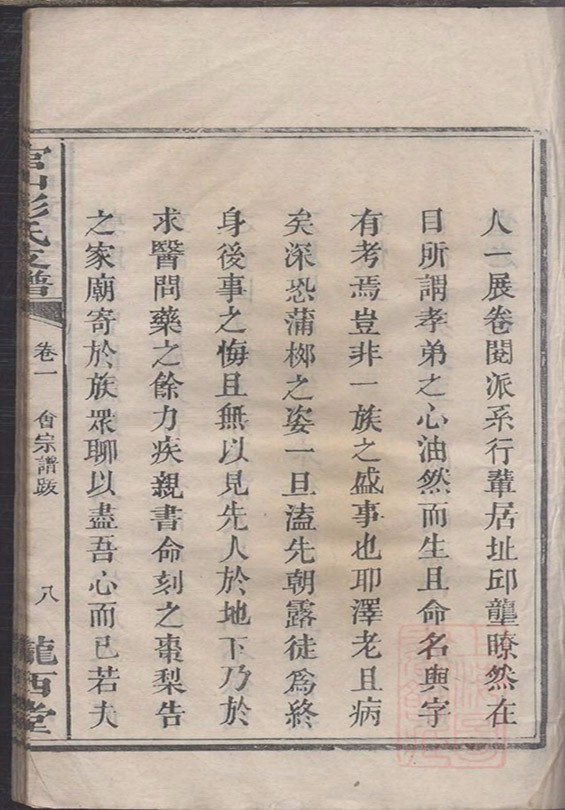 人一展卷閱派系行輩居址邱壟瞭然在
目所謂孝弟之心油然而生且命名與字
有考焉豈非一族之盛事也耶澤老且病
矣深恐蒲桺之姿一旦溘先朝露徒為終
身後事之悔且無以見先人於地下乃於
求醫問藥之餘力疾親書命刻之棗梨告
之家廟寄於族眾聊以盡吾心而已若夫
官山彭氏支譜
卷一
會宗譜跋
八
隴西堂